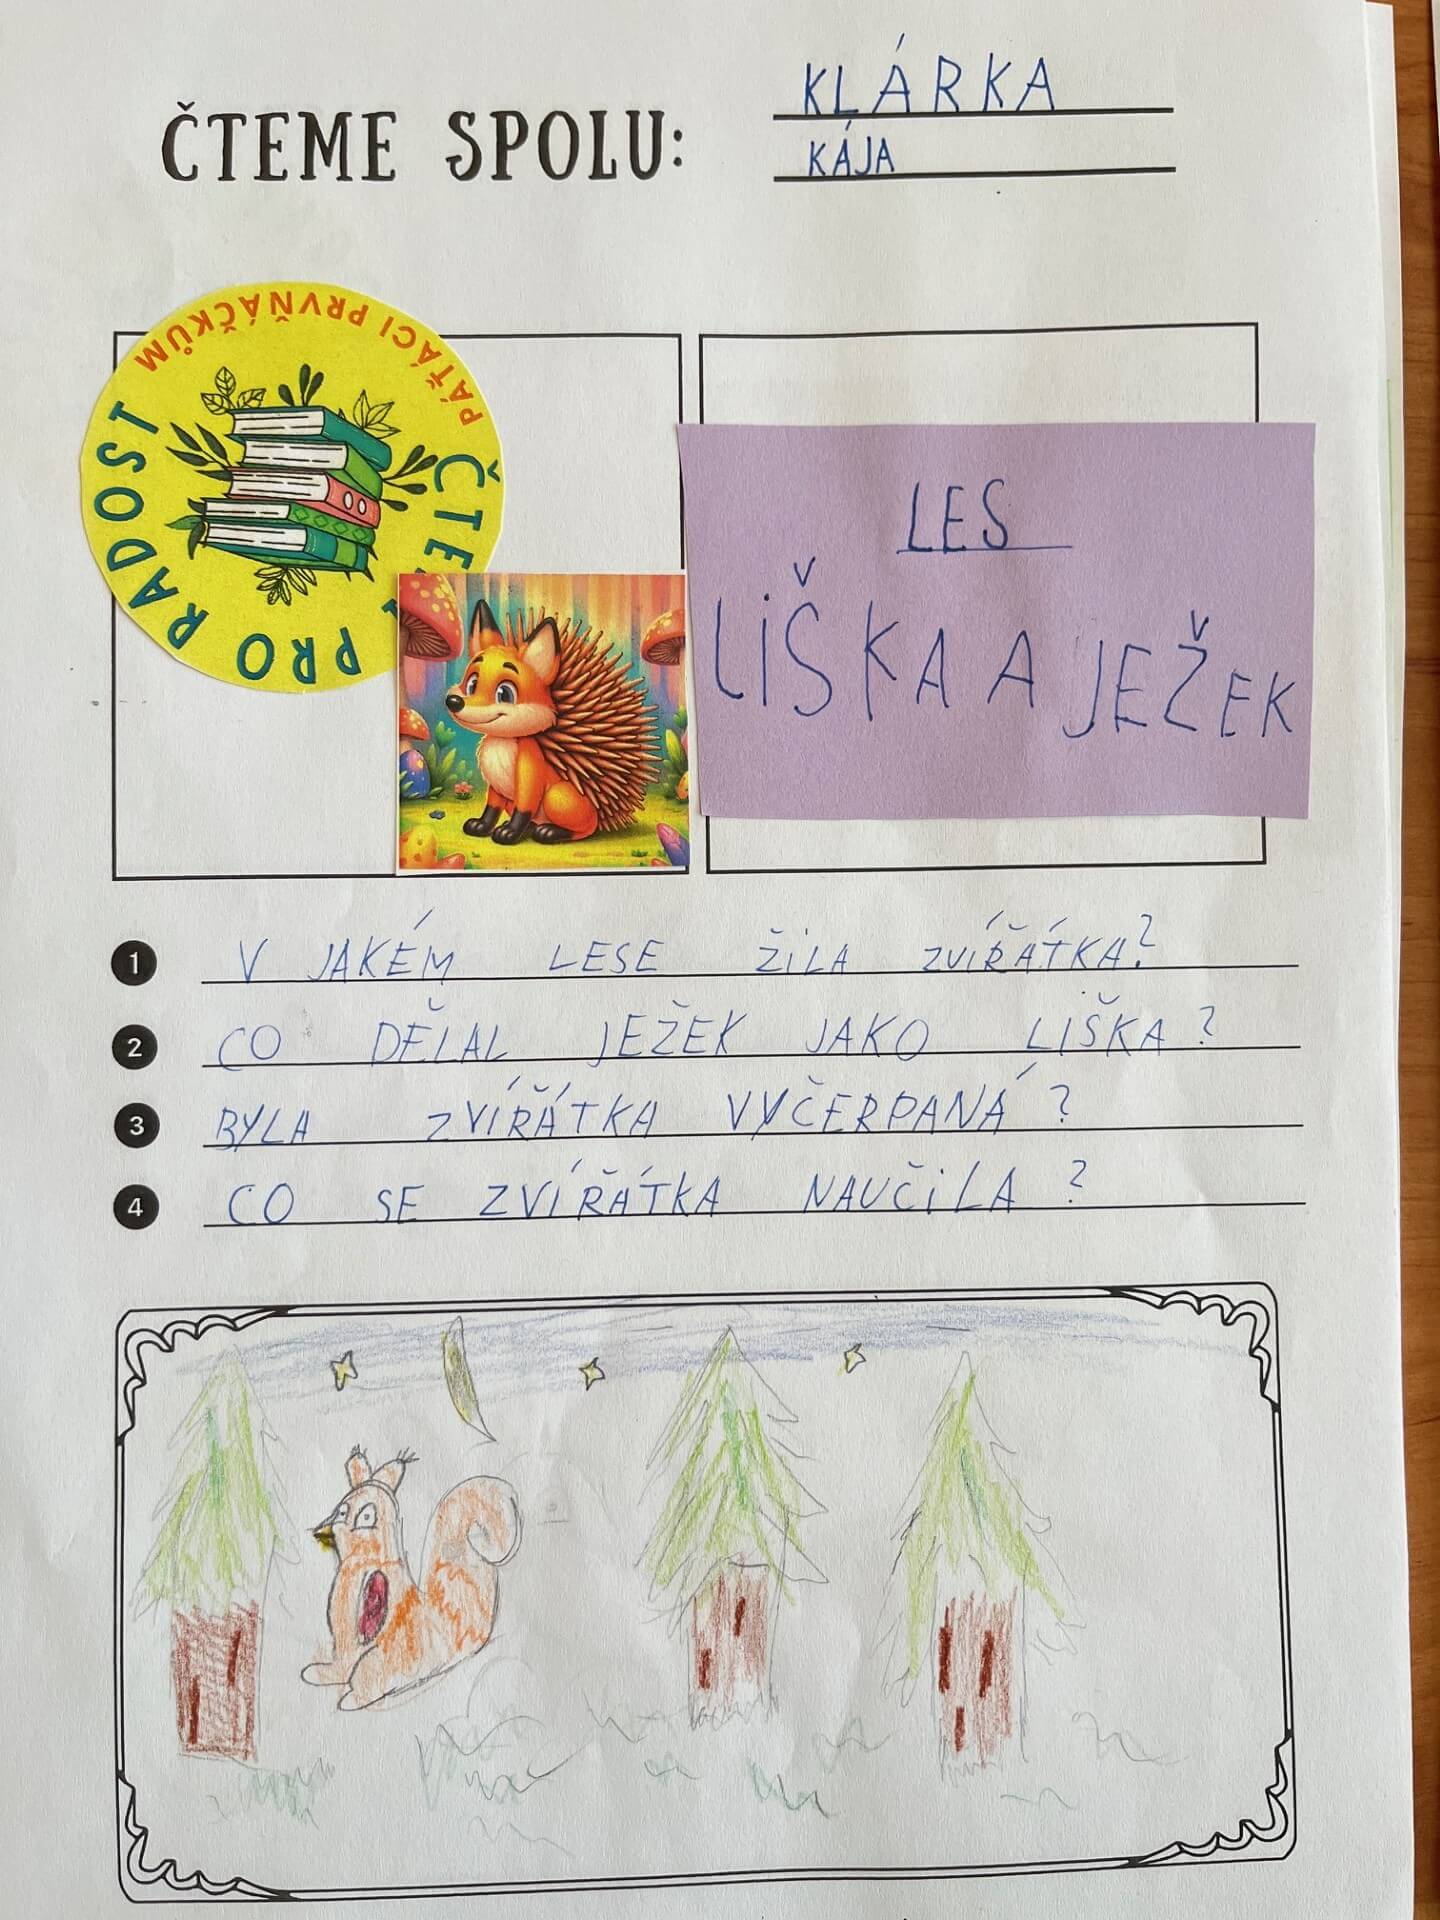 ČTEME SPOLU:
KLÁRKA
KÁJA
PÁŤÁCI PRVŇÁČKŮM
PRO RADOST
LES
LIŠKA A JEŽEK
1 V JAKÉM LESE ŽILA ZVÍŘÁTKA?
2 CO DĚLAL JEŽEK JAKO LIŠKA?
3 BYLA ZVÍŘÁTKA VYČERPANÁ?
4 CO SE ZVÍŘÁTKA NAUČILA?